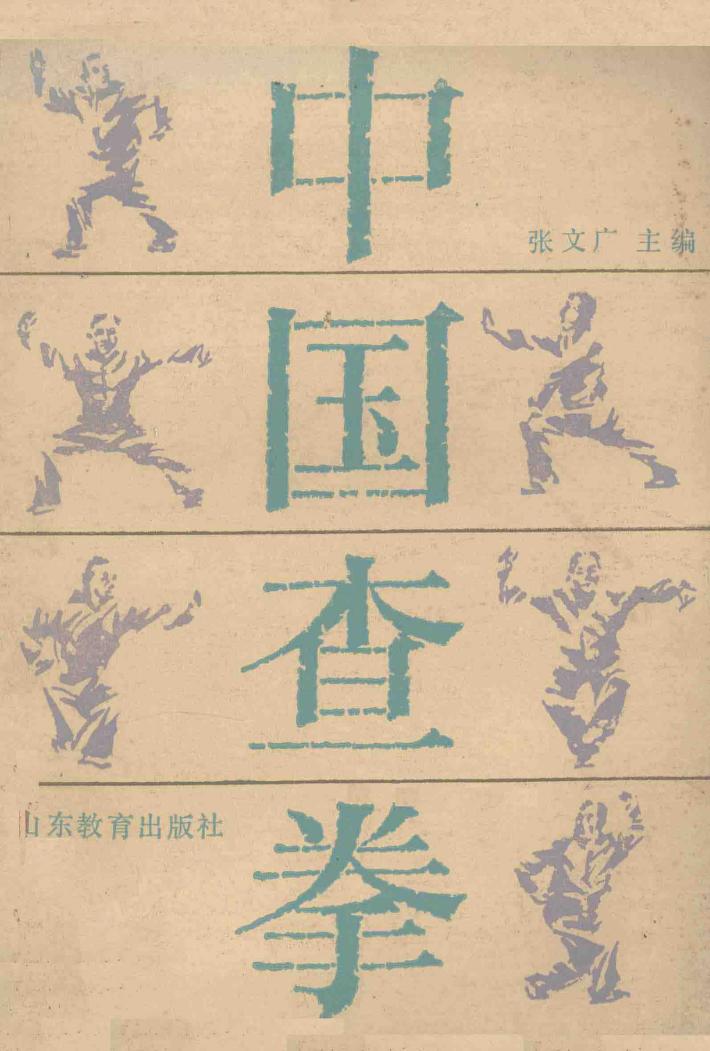 中国查拳
张文广 主编
山东教育出版社